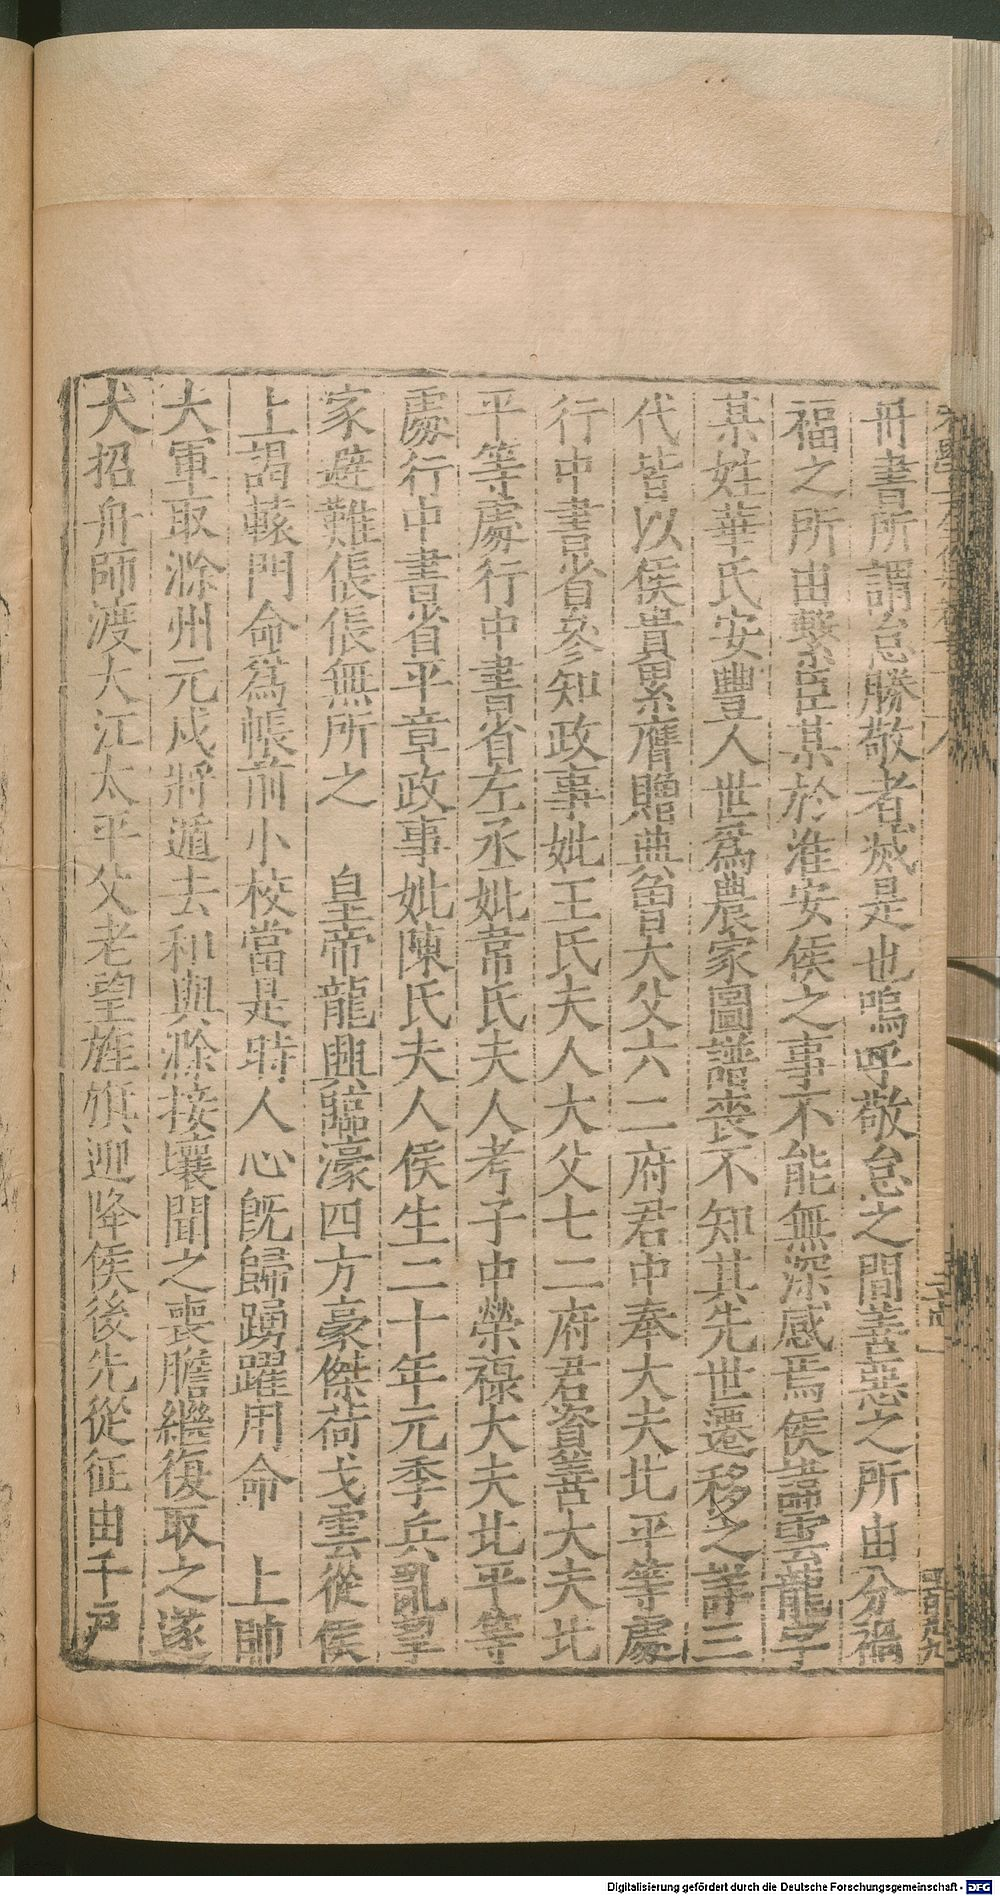 冊書所謂怠勝敬者滅是也嗚呼敬怠之間善惡之所由分禍
福之所由繫臣某於淮安侯之事不能無深感焉侯諱雲龍字
某姓華氏安豐人世爲農家圖譜喪不知其先世遷移之詳三
代皆以侯貴累膺贈典曾大父六二府君中奉大夫北平等處
行中書省參知政事妣王氏夫人大父七二府君資善大夫北
平等處行中書省左丞妣常氏夫人考子中榮祿大夫北平等
處行中書省平章政事妣陳氏夫人侯生二十年元季兵亂挈
家避難倀倀無所之 皇帝龍興臨濠四方豪傑荷戈雲從侯
上謁轅門命爲帳前小校當是時人心旣歸踴躍用命 上帥
大軍取滁州元戍將遁去和與滁接壤聞之喪膽繼復取之遂
大招舟師渡大江太平父老望旌旗迎降侯後先從征由千戶
Digitalisierung gefördert durch die Deutsche Forschungsgemeinschaft - DFG